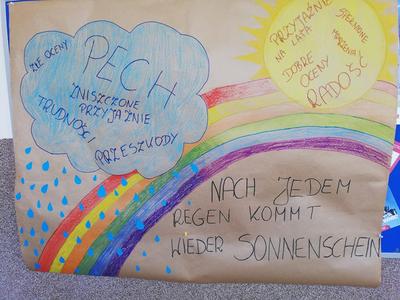 ZŁE OCENY
PECH
ZNISZCZONE
PRZYJAŹNIE
TRUDNOŚCI
PRZESZKODY
PRZYJAŹNIE
NA LATA
SPEŁNIONE
MARZENIA
DOBRE
OCENY
RADOŚĆ
NACH JEDEM
REGEN KOMMT
WIEDER SONNENSCHEIN